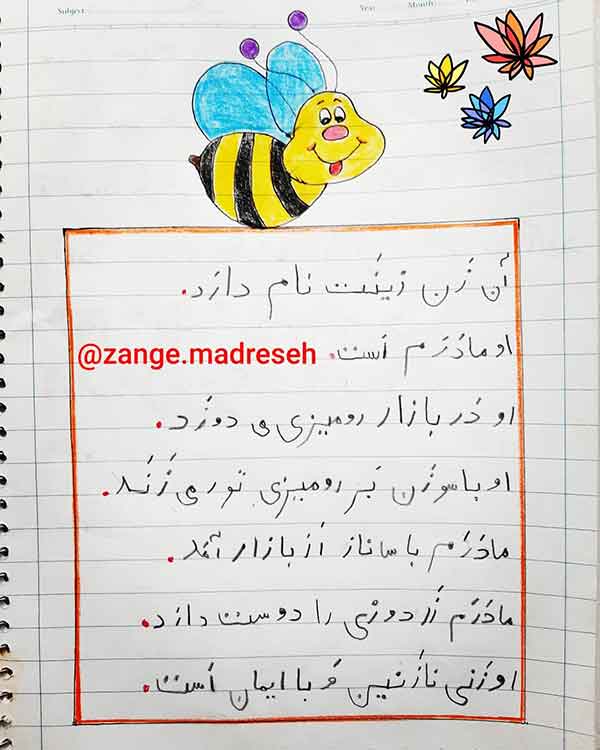 Subject: Year: Month:
آن زَن زینَت نام دارَد.
او مادَرَم اَست.
@zange.madreseh
او دَر بازار رومیزی می دوزَد.
او با سوزَن بَر رومیزی تور می زَنَد.
مادَرَم با ساناز اَز بازار آمَد.
مادَرَم زَردوزی را دوست دارَد.
او زَنی نازَنین وَ با ایمان اَست.